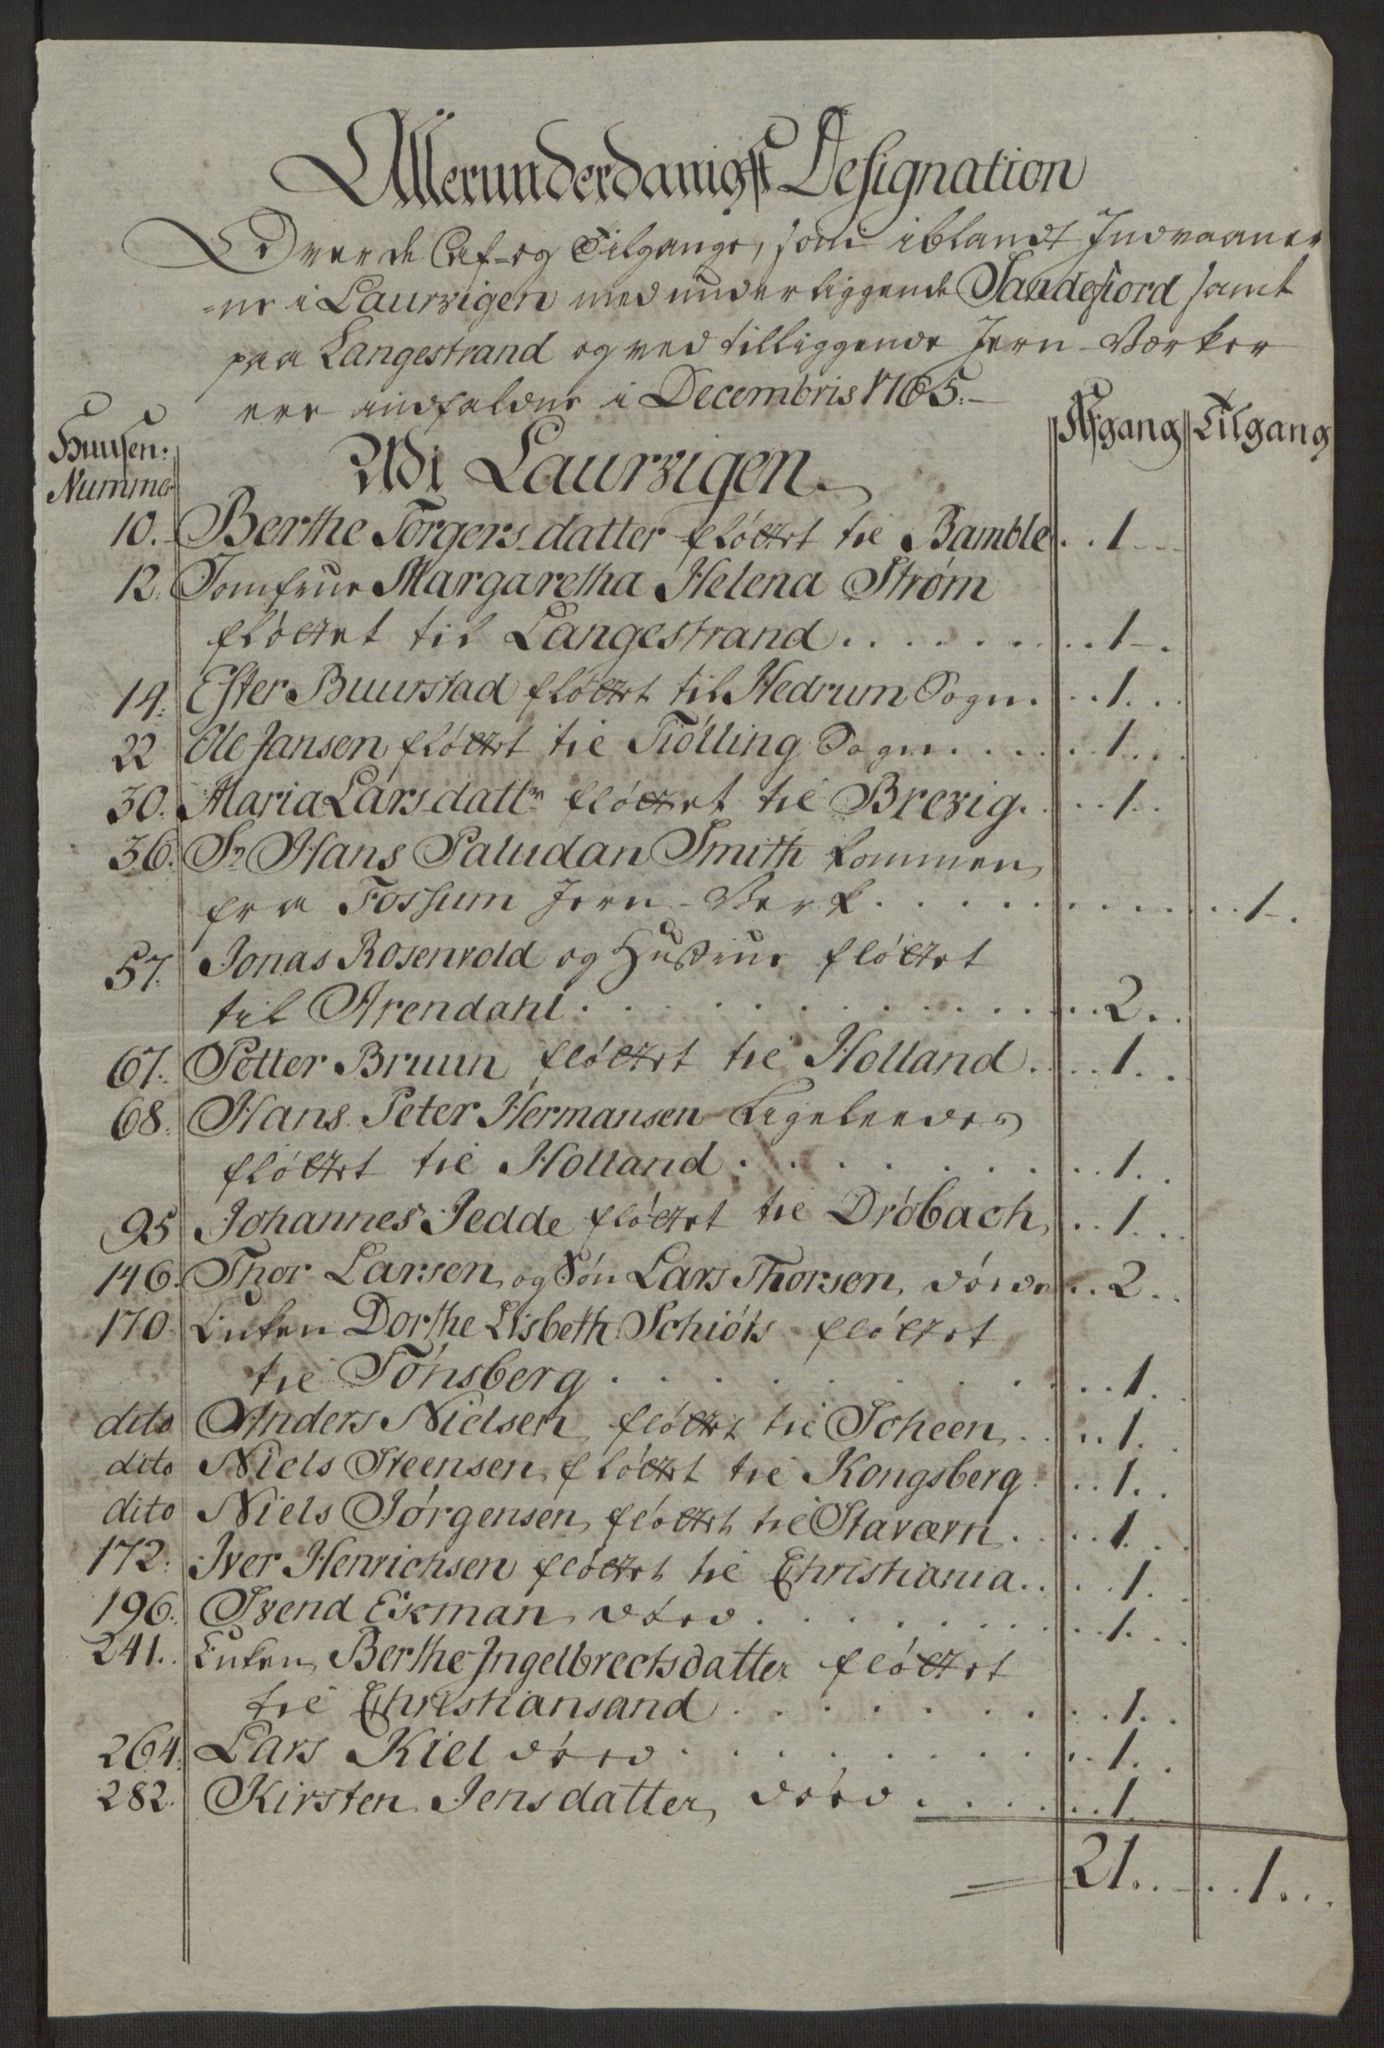 Allerunderdanigst Designation
Over de Af- og Tilgange, som iblandt Indvaaner
=ne i Laurvigen med underliggende Sandefiord samt
paa Langestrand og ved tilliggende Jern-Værker
ere indfaldne i Decembris 1765.
Huusen: Nummer
Udi Laurvigen
Afgang Tilgang
10. Berthe Torgers datter fløttet til Bamble .. 1
12. Jomfrue Margaretha Helena Strøm
fløttet til Langestrand ....... 1
14. Ester Buurstad fløttet til Hedrum Sogn ... 1
22 Ole Jansen fløttet til Tiølling Sogn .... 1
30. Maria Larsdattr fløttet til Brevig .... 1
36. Sr Hans Paludan Smith kommen
fra Fossum Jern-Verk ........... 1
57. Jonas Rosenvold og Hustrue fløttet
til Arendahl ........... 2
67. Petter Bruun fløttet til Holland .... 1
68. Hans Peter Hermansen Ligeleedes
fløttet til Holland ......... 1
95 Johannes Jedde fløttet til Drøbach .. 1
146. Thor Larsen og Søn Lars Thorsen døde .. 2
170. Enken Dorthe Lisbeth Schiøts fløttet
til Tønsberg .......... 1
dito Anders Nielsen fløttet til Scheen .... 1
dito Niels Steensen fløttet til Kongsberg ... 1
dito Niels Jørgensen fløttet til Staværn .... 1
172. Iver Henrichsen fløttet til Christiania .... 1
196. Svend Ekman død ......... 1
241. Enken Berthe Ingelbrectsdatter fløttet
til Christiansand ......... 1
264. Lars Kiel død .......... 1
282. Kirsten Jensdatter død ...... 1
21 ... 1